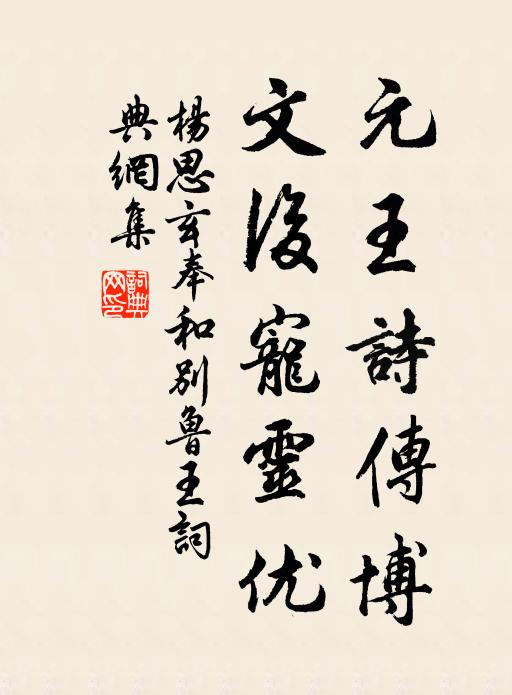 元王詩傳博
文後寵靈优
楊思玄奉和別魯王詞
典網集
詞典網印